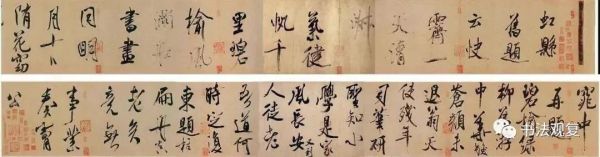 虹縣
舊題
云快
霽一
天清
淑
氣健
帆千
里碧
榆風
滿舡
書畫
同明
月十日
隋花窈
窕中
再題
碧榆綠
柳舊游
中華髮
蒼顏未
退翁天
使殘年
司筆研
聖知小
學是家
風長安又到
人徒老
吾道何
時定復
東題柱
扁舟真
老矣
竟無
事業
奏膚
公
书法观复